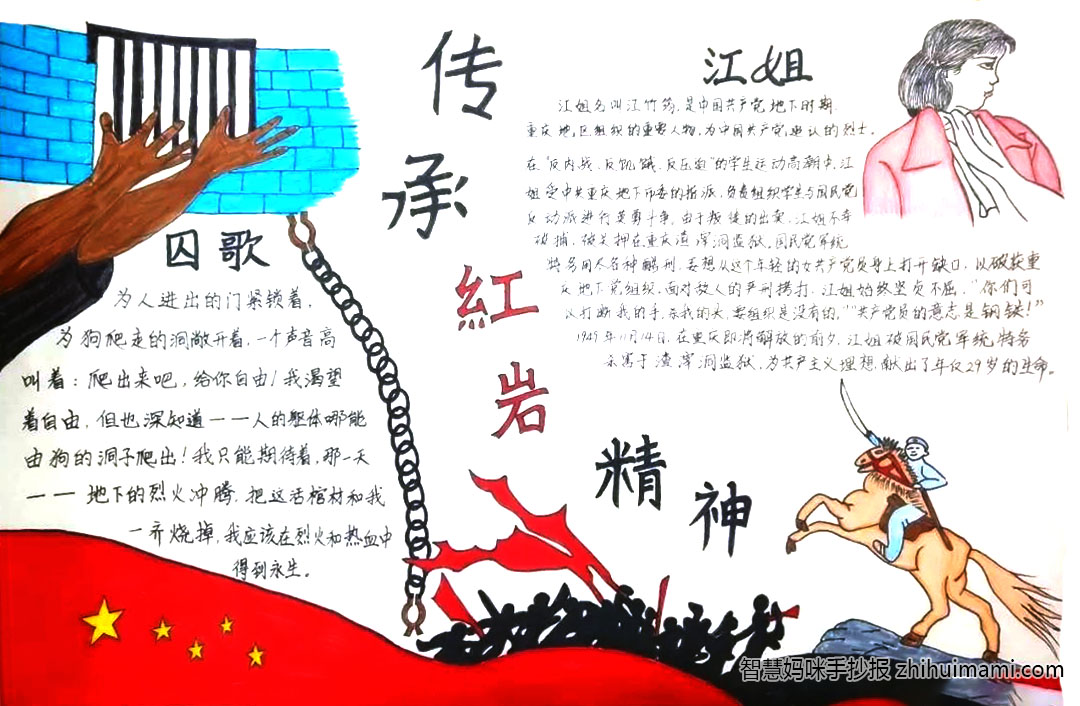 传
承
紅
岩
精
神
囚歌
为人进出的门紧锁着，
为狗爬走的洞敞开着，一个声音高
叫着：爬出来吧，给你自由！我渴望
着自由，但也深知道——人的躯体哪能
由狗的洞子爬出！我只能期待着，那一天
——地下的烈火冲腾，把这活棺材和我
一齐烧掉，我应该在烈火和热血中
得到永生。
江姐
江姐名叫江竹筠，是中国共产党地下时期
重庆地区组织的重要人物，为中国共产党追认的烈士。
在"反内战、反饥饿、反压迫"的学生运动高潮中，江
姐受中共重庆地下市委的指派，负责组织学生与国民党
反动派进行英勇斗争。由于叛徒的出卖，江姐不幸
被捕，被关押在重庆渣滓洞监狱。国民党军统
特务用尽各种酷刑，妄想从这个年轻的女共产党员身上打开缺口，以破获重
庆地下党组织。面对敌人的严刑拷打，江姐始终坚贞不屈，"你们可
以打断我的手，杀我的头，要组织是没有的。""共产党员的意志是钢铁！"
1949年11月14日，在重庆即将解放的前夕，江姐被国民党军统特务
杀害于渣滓洞监狱，为共产主义理想献出了年仅29岁的生命。
智慧妈咪手抄报 zhihuimami.com